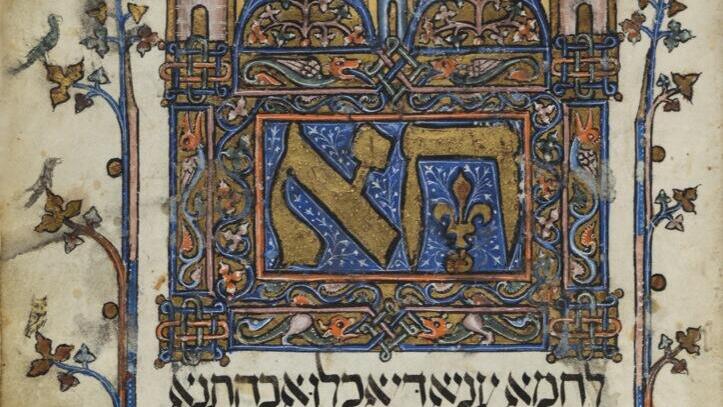 הא
לחמא עניא די אכלו אבהתנא